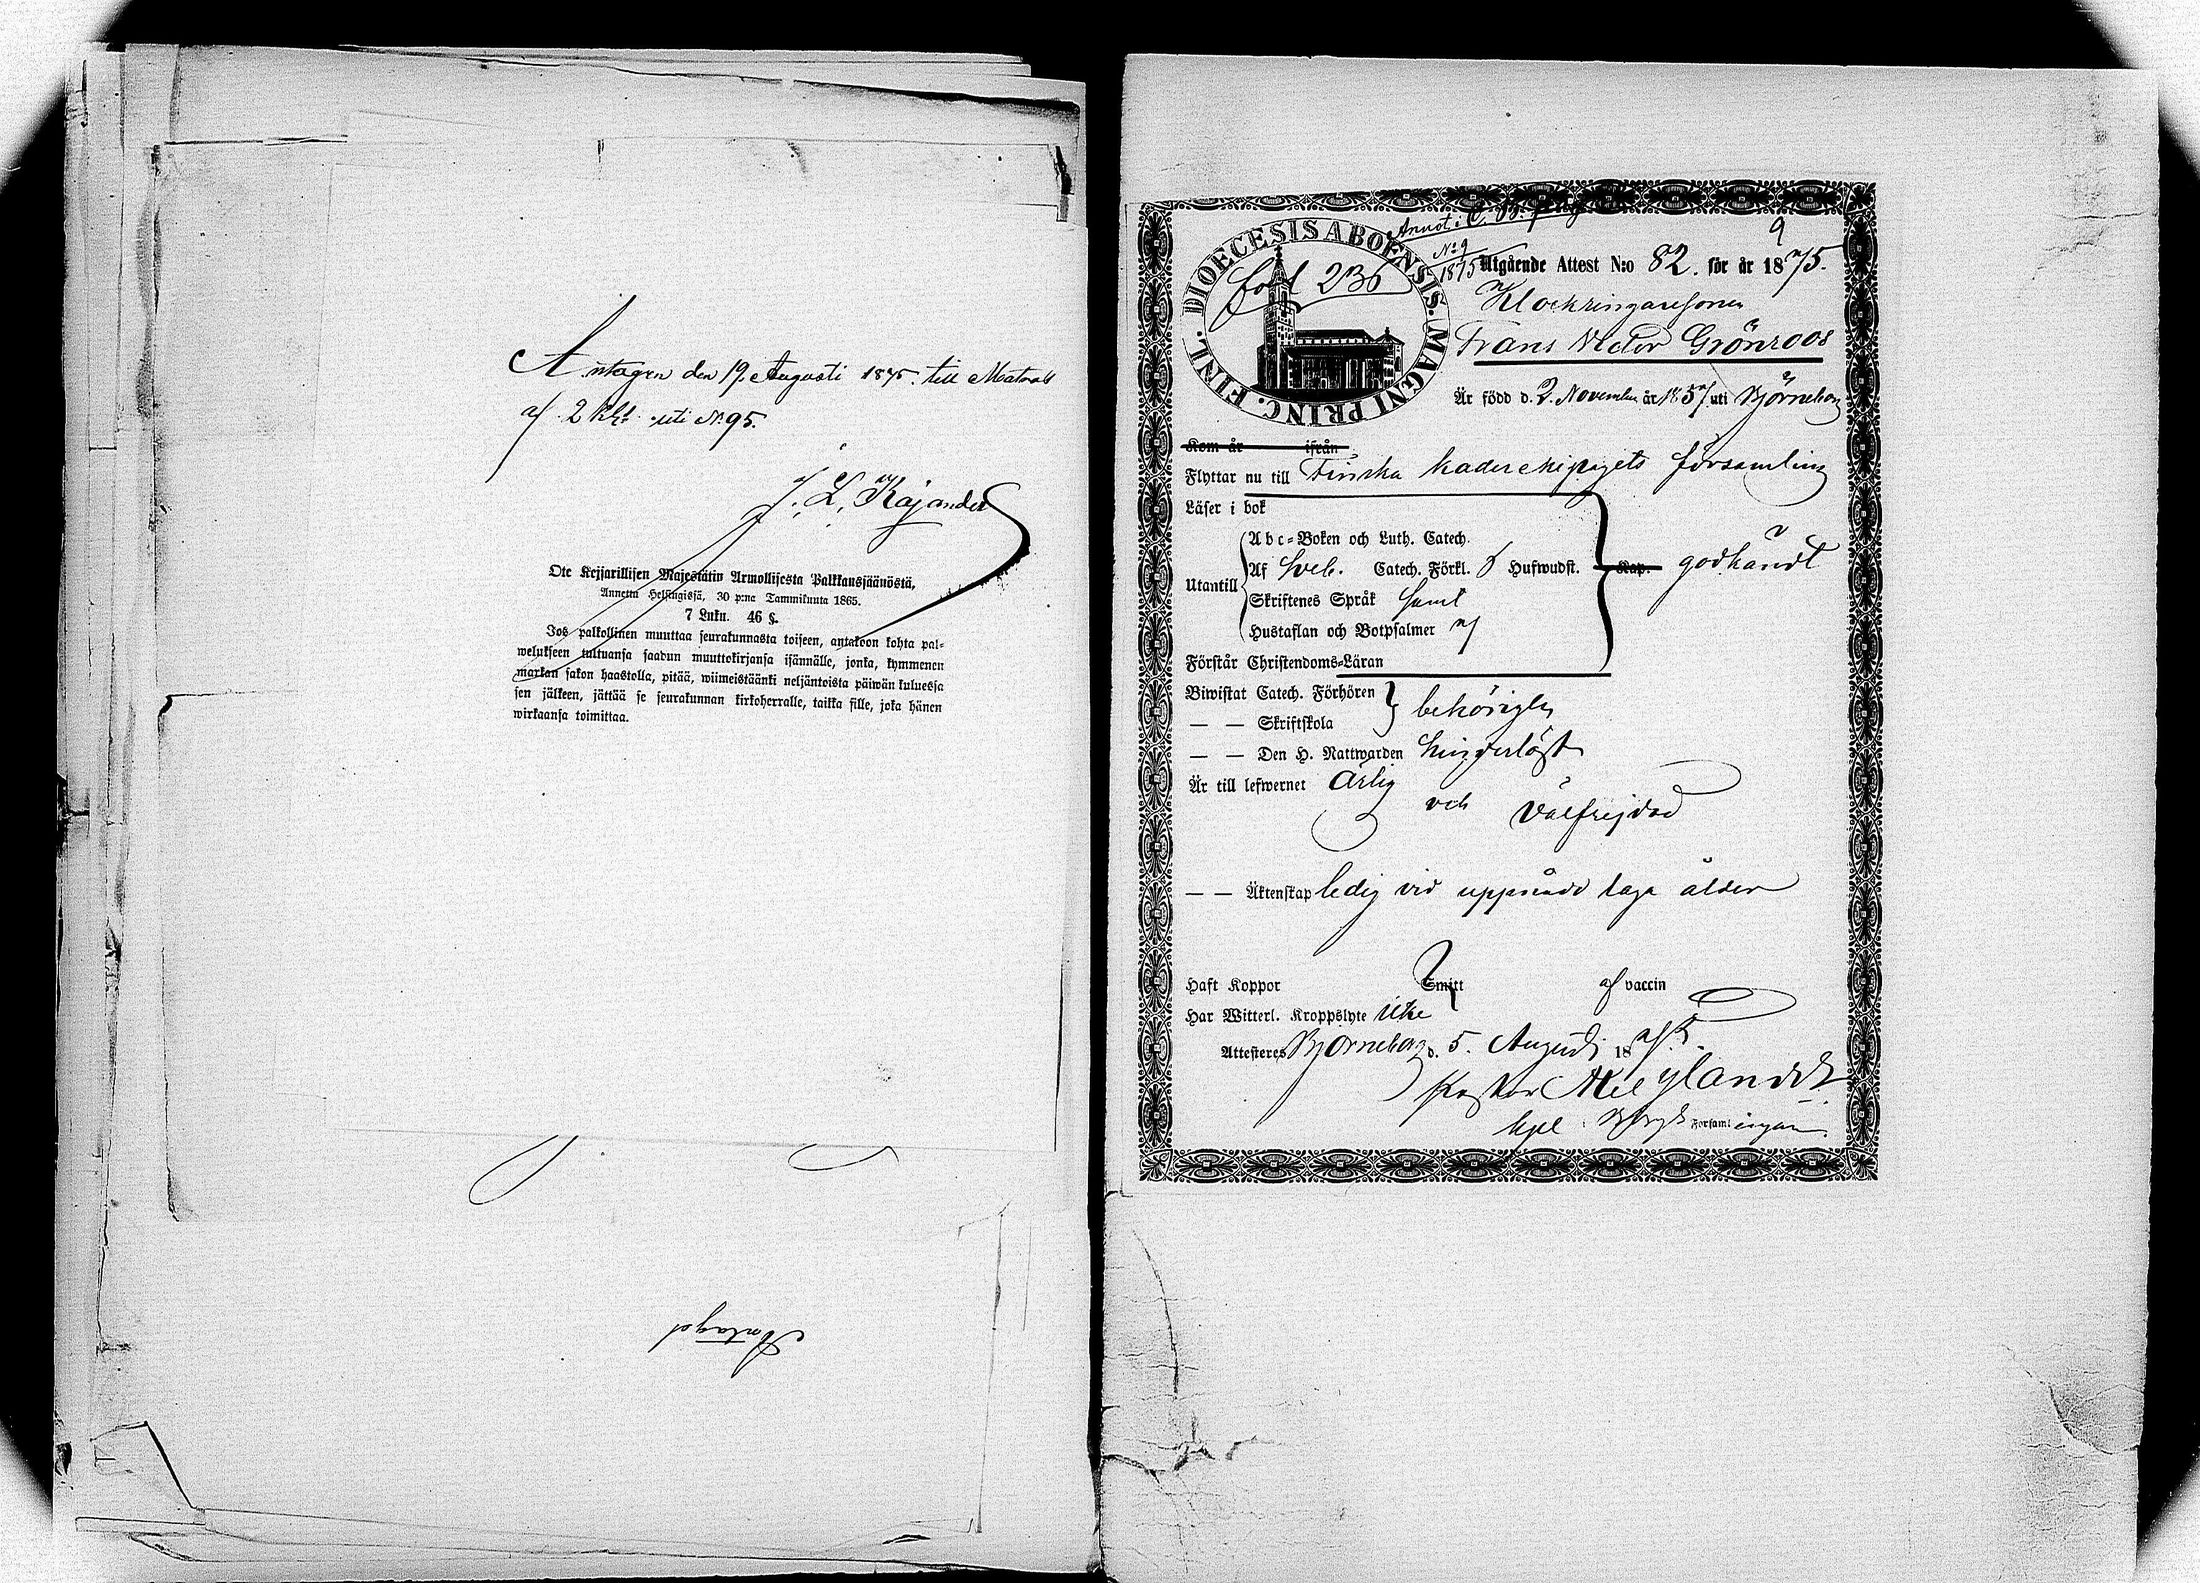 Antagen den 19. Augusti 1875. till Matros
af 2 Kl. uti N:o 95.
J. L. Kajander
Ote Keisarillisen Majestätin Armollisesta Palkkausfäännöstä,
Annettu Helsingissä, 30 p:nä Tammikuuta 1865.
7 Luku. 46 §.
Jos palkollinen muuttaa seurakunnasta toiseen, antakoon kohta pal-
welukseen tultuansa saadun muuttokirjansa isännälle, jonka, kymmenen
markan sakon haastolla, pitää, wiimeistäänki neljäntoista päiwän kuluessa
sen jälkeen, jättää se seurakunnan kirkoherralle, taikka sille, joka hänen
wirkaansa toimittaa.
Antagol
9
Annot. i C. B.
N:o 9
1875
DIOECESIS ABOENSIS. MAGNI PRINC. FINL.
fol 236
Utgående Attest N:o 82. för år 1875.
Klockringaresonen
Frans Victor Grönroos
Är född d. 2. November år 1857 uti Björneborg
Kom år ifrån
Flyttar nu till Finska kaderekipagets församling
Läser i bok
Abc-Boken och Luth. Catech.
Utantill Af Sveb. Catech. Förkl. Hufwudst. Kap. godkändt
Skriftenes Språk samt
Hustaflan och Botpsalmer
Förstår Christendoms-Läran
Biwistat Catech. Förhören behörigen
— — Skriftskola
— — Den H. Nattwarden hinderlöst
Är till lefwernet ärlig
och välfrejdad
— — Äktenskap ledig vid uppnådd laga ålder
Haft Koppor Smitt af vaccin
Har Witterl. Kroppslyte icke
Attesteras Björneborg d. 5. Augusti 1875.
Pastor
kpl i Församlingan